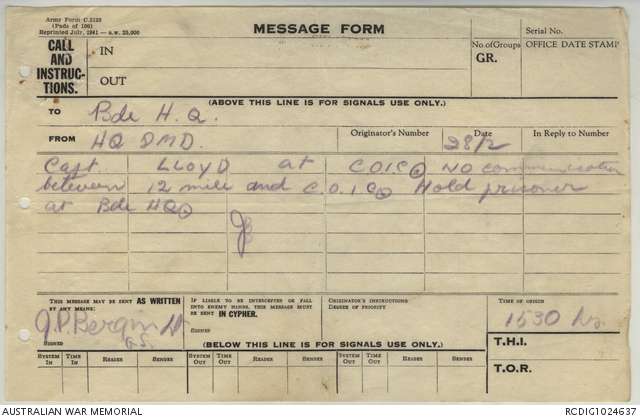 Army Form C.2128
(Pads of 100)
Reprinted July, 1941 — s.w. 25,000
MESSAGE FORM
Serial No.
CALL AND INSTRUC-TIONS.
IN
OUT
No. of Groups
GR.
OFFICE DATE STAMP
(ABOVE THIS LINE IS FOR SIGNALS USE ONLY.)
TO Bde H.Q.
FROM HQ DMD.
Originator's Number
Date
28/2
In Reply to Number
Capt LLOYD at C.O.I.C. NO communication
between 12 mile and C.O.I.C. Hold prisoner
at Bde HQ
THIS MESSAGE MAY BE SENT AS WRITTEN
BY ANY MEANS:
J.P. Bergin Lt
G.S.
SIGNED
IF LIABLE TO BE INTERCEPTED OR FALL
INTO ENEMY HANDS, THIS MESSAGE MUST
BE SENT IN CYPHER.
SIGNED
ORIGINATOR'S INSTRUCTIONS
DEGREE OF PRIORITY
TIME OF ORIGIN
1530 hrs.
(BELOW THIS LINE IS FOR SIGNALS USE ONLY.)
T.H.I.
T.O.R.
SYSTEM IN TIME IN READER SENDER SYSTEM OUT TIME OUT READER SENDER SYSTEM OUT TIME OUT READER SENDER
AUSTRALIAN WAR MEMORIAL
RCDIG1024637